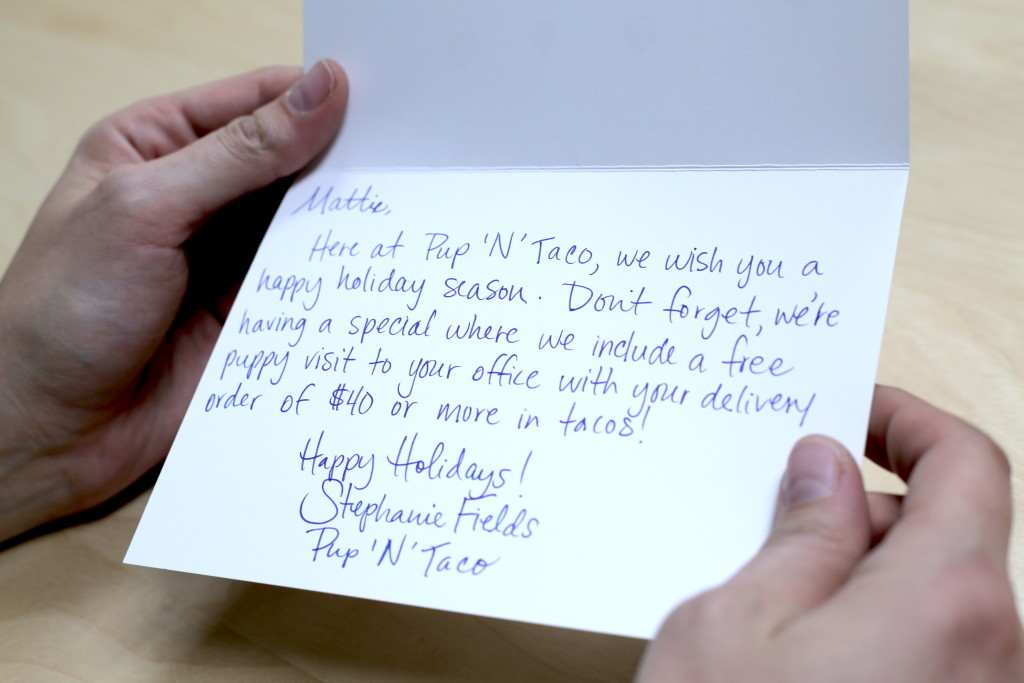 Mattie,
Here at Pup 'N' Taco, we wish you a
happy holiday season. Don't forget, we're
having a special where we include a free
puppy visit to your office with your delivery
order of $40 or more in tacos!
Happy Holidays!
Stephanie Fields
Pup 'N' Taco